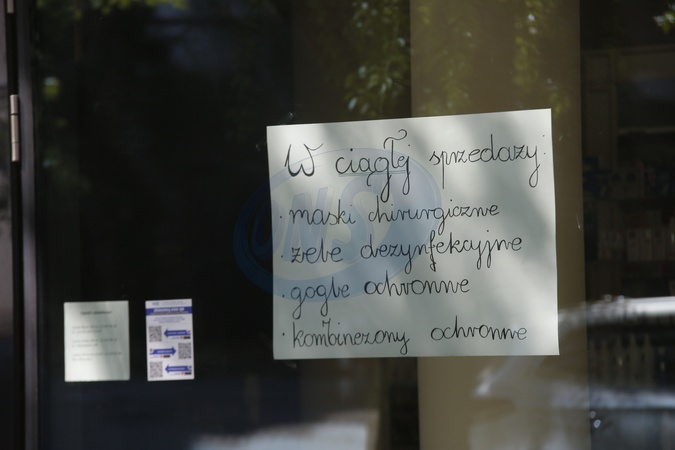 W ciągłej sprzedaży:
· maski chirurgiczne
· żele dezynfekcyjne
· gogle ochronne
· kombinezony ochronne